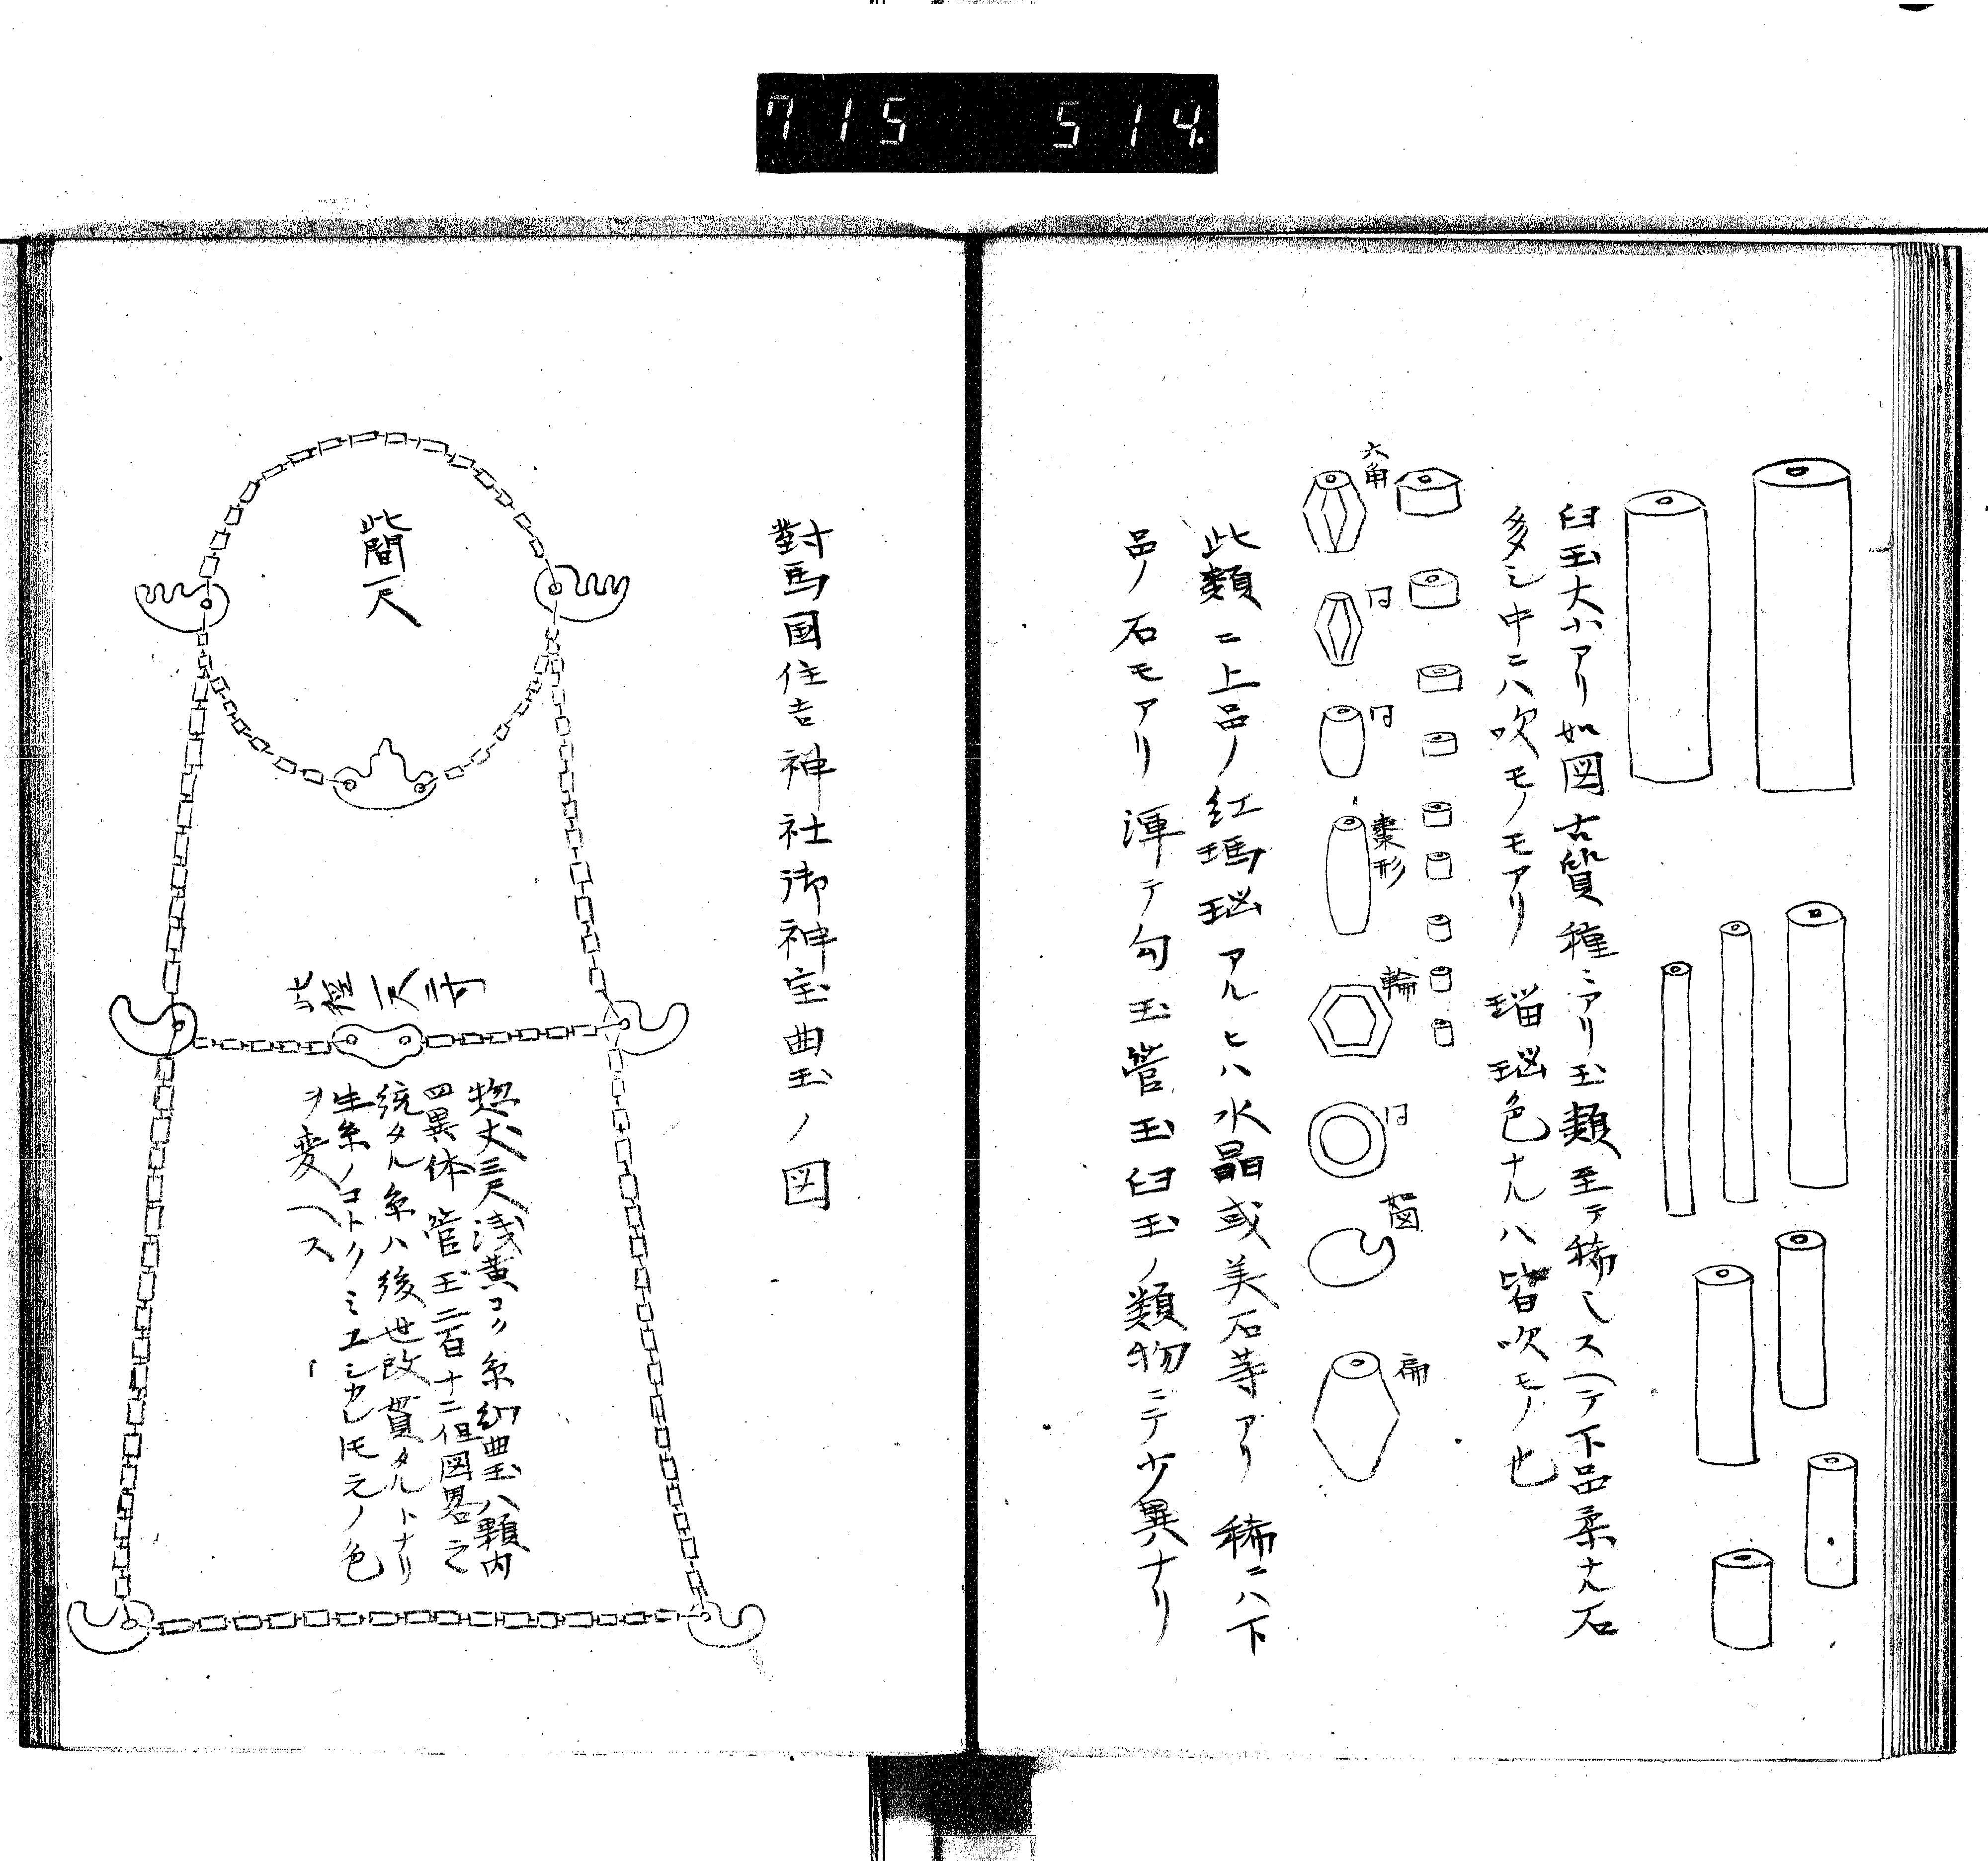 715 514
臼玉大小アリ如図古質種〻アリ玉類至テ稀レスヘテ下品柔ナル石
多シ中ニハ吹モノモアリ 瑙色ナルハ皆吹モノ也
六角
同
同
棗形
輪
同
扁
此類ニ上品ノ紅瑪瑙アルヒハ水晶或美石等アリ稀ニハ下
品ノ石モアリ渾テ勾玉管玉臼玉ノ類物ニテ少異ナリ
對馬國住吉神社御神宝曲玉ノ図
此間一尺
惣丈三尺浅黄コク糸 曲玉八顆内
四異体管玉二百十二但図畧之
統タル糸ハ後世改貫タルトナリ
生糸ノコトクミユシカレトモ元ノ色
ヲ変ヘス